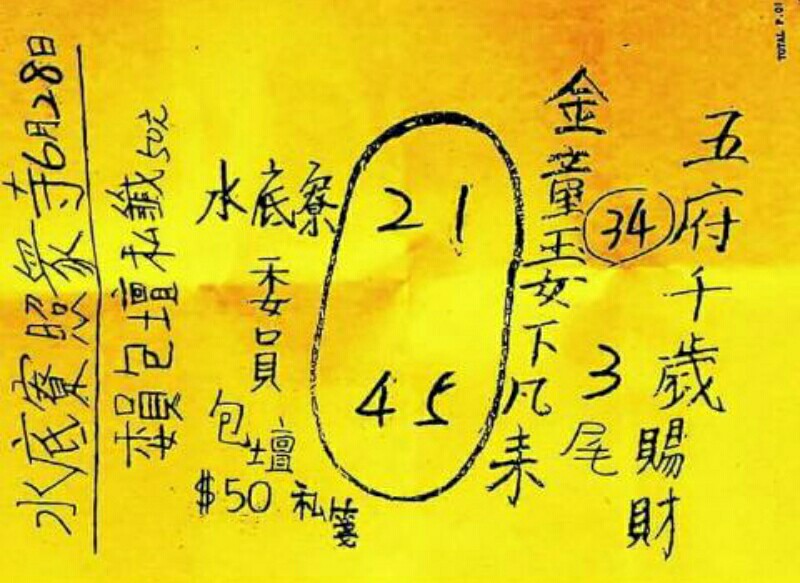 五府千歲賜財
34
3尾
金童玉女下凡來
21
45
水底寮
委員
包壇
$50 私箋
賴包壇私籤50元
水底寮照眾寺6月28日
TOTAL P.01